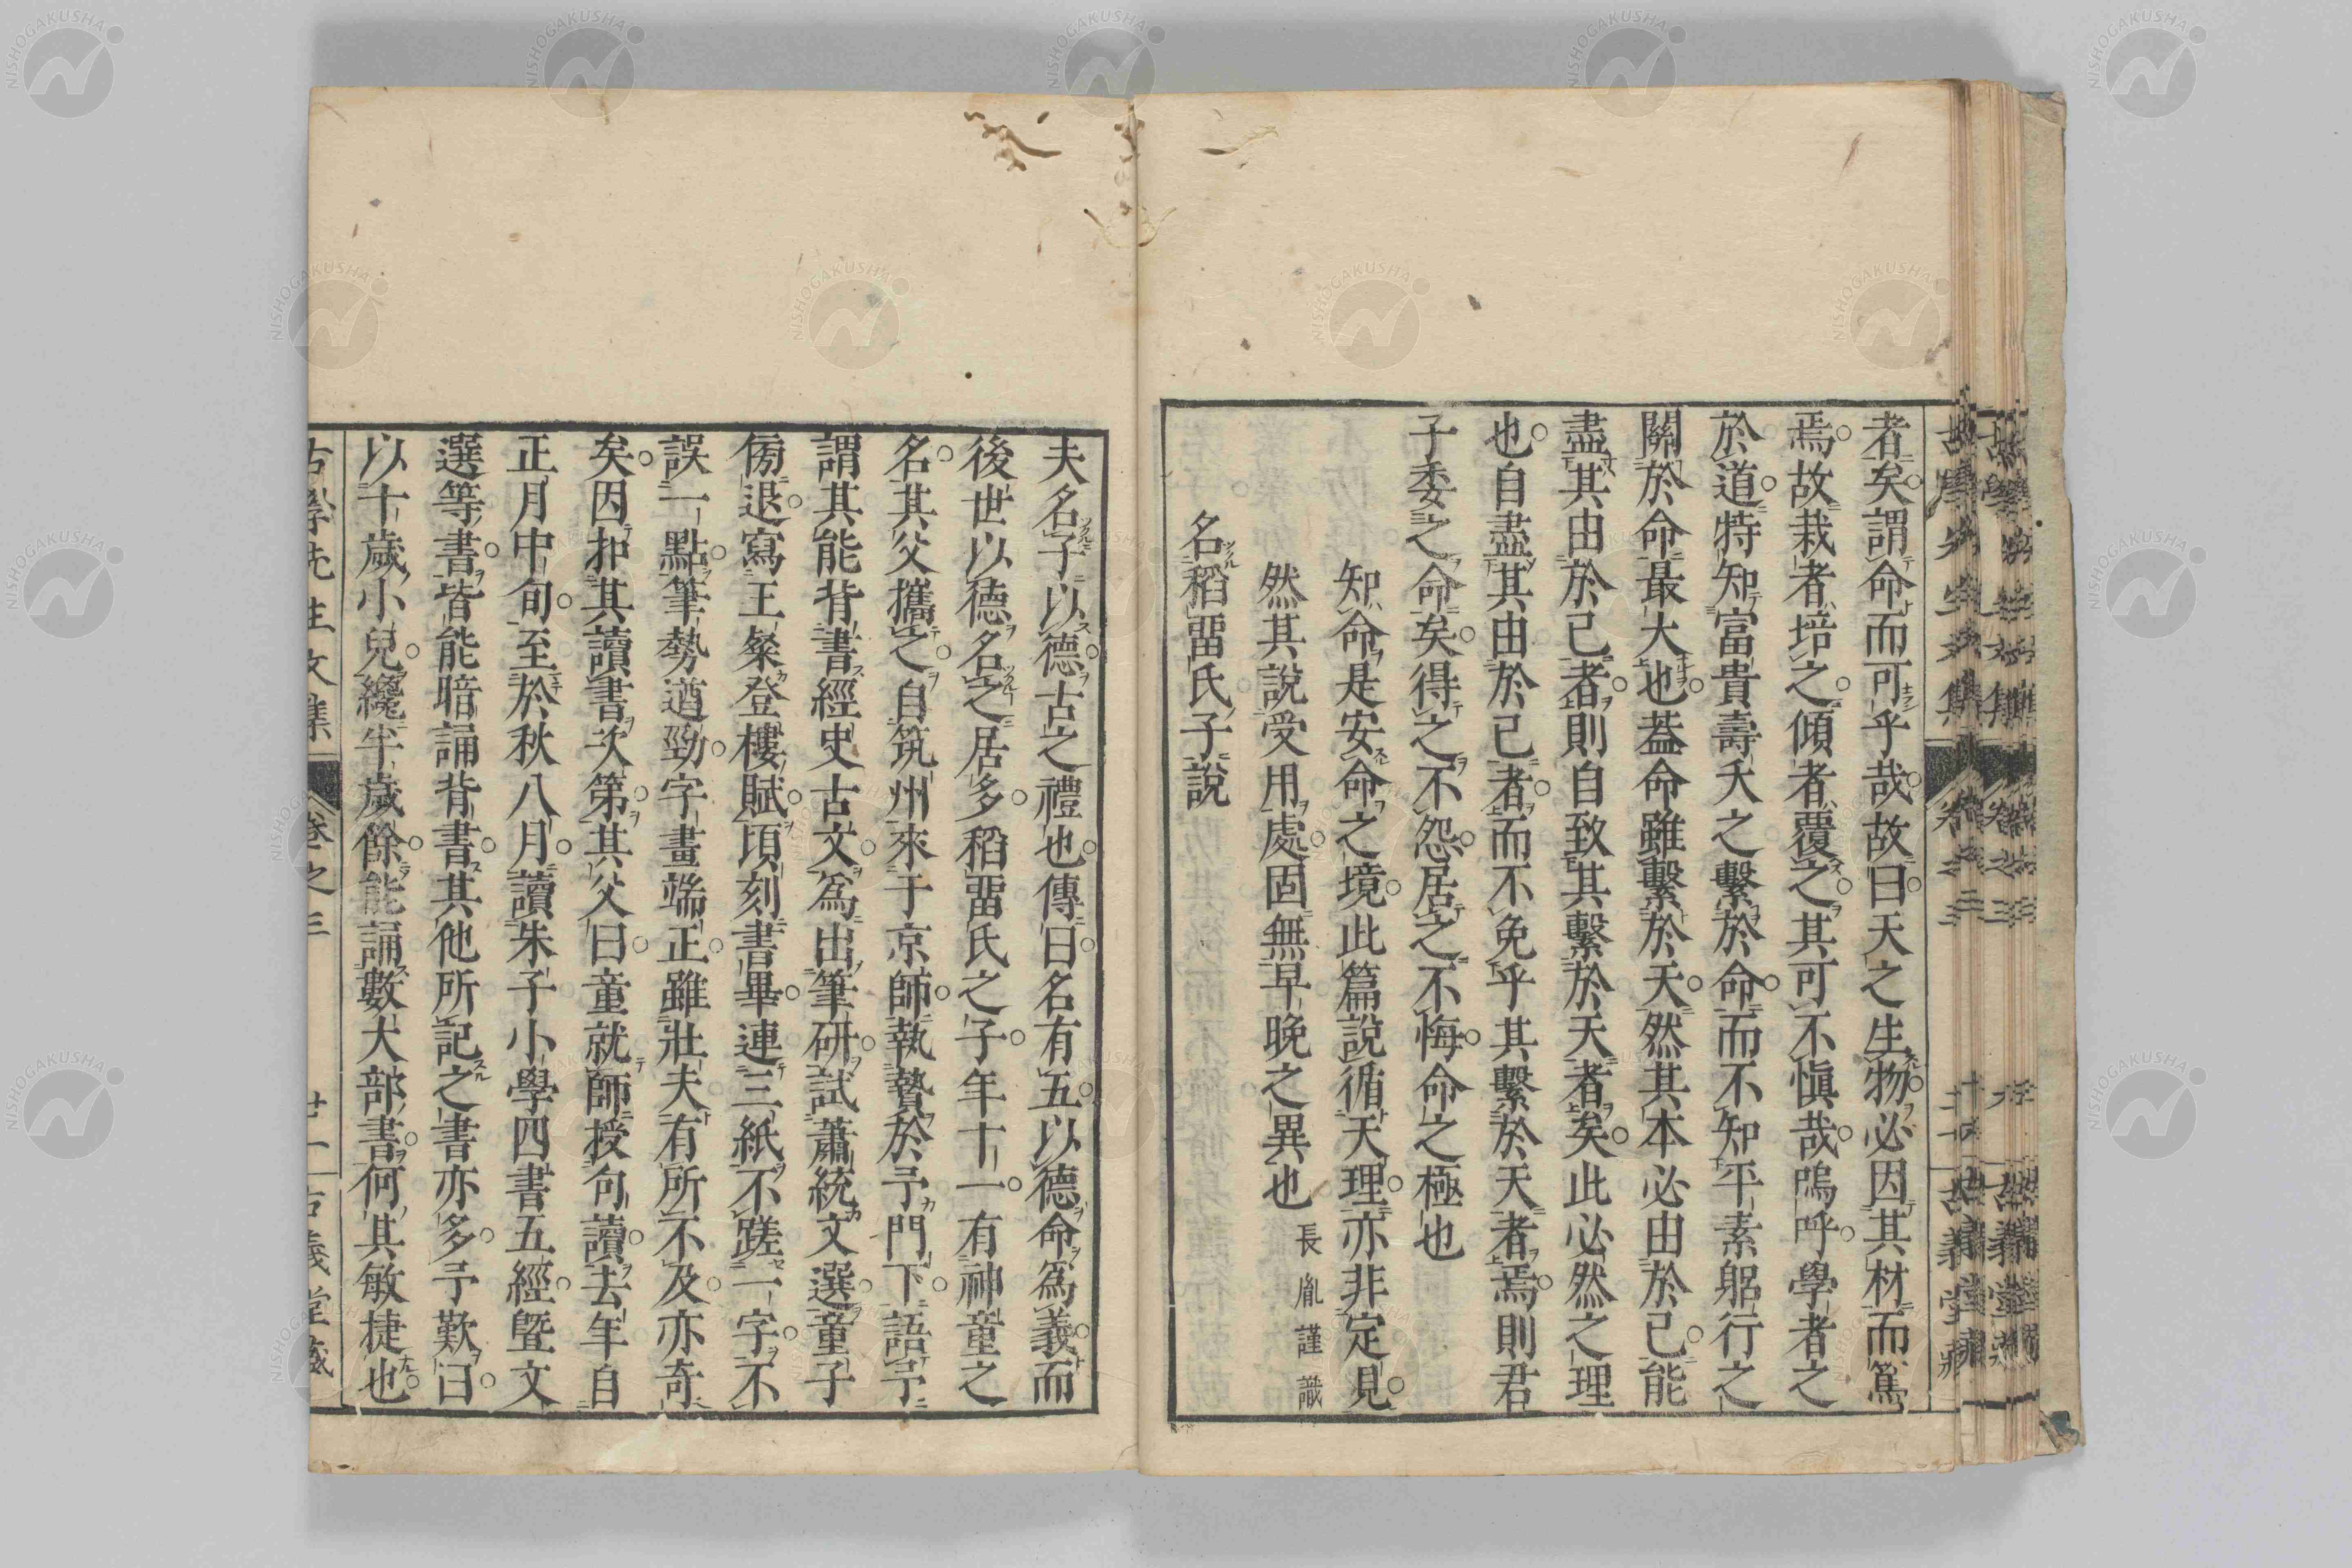 者矣謂命而可乎哉故曰天之生物必因其材而篤
焉故栽者培之傾者覆之其可不愼哉嗚呼學者之
於道特知富貴壽夭之繫於命而不知平素躳行之
關於命最大也葢命雖繫於天然其本必由於己能
盡其由於己者則自致其繫於天者矣此必然之理
也自盡其由於己者而不免乎其繫於天者焉則君
子委之命矣得之不怨居之不悔命之極也
知命是安命之境此篇說循天理亦非定見
然其說受用處固無早晚之異也 長胤謹識
名稻畱氏子說
夫名子以德古之禮也傳曰名有五以德命爲義而
後世以德名之居多稻畱氏之子年十一有神童之
名其父攜之自筑州來于京師執贄於予門下語予
謂其能背書經史古文爲出筆研試蕭統文選童子
傍退寫王粲登樓賦頃刻書畢連三紙不蹉一字不
誤一點筆勢遒勁字畫端正雖壯夫有所不及亦奇
矣因扣其讀書次第其父曰童就師授句讀去年自
正月中旬至於秋八月讀朱子小學四書五經曁文
選等書皆能暗誦背書其他所記之書亦多予歎曰
以十歲小兒纔半歲餘能誦數大部書何其敏捷也
古學先生文集 卷之三 廿一 古義堂藏
NISHOGAKUSHA